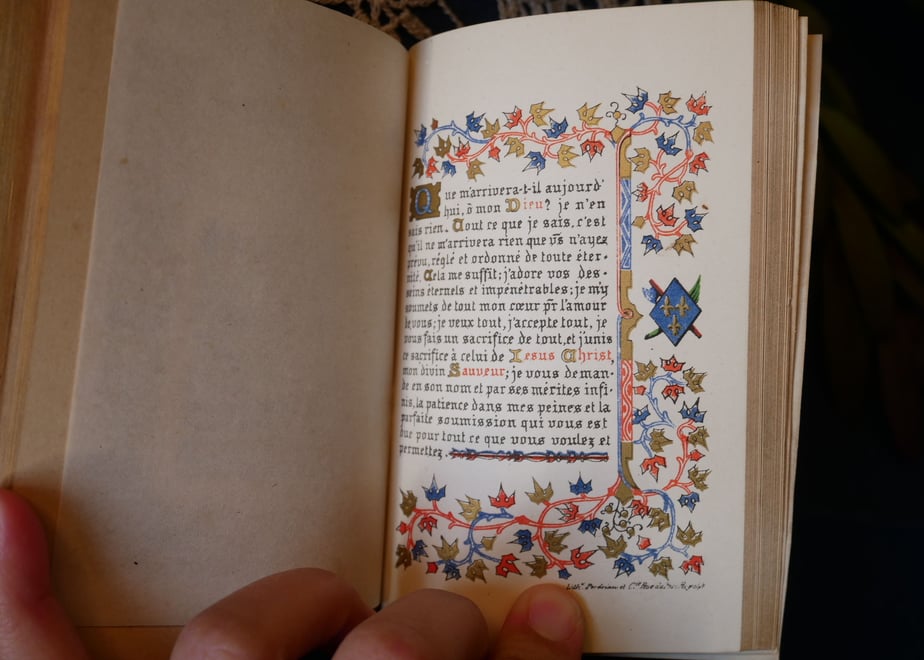 Que m'arrivera-t-il aujourd'
hui, ô mon Dieu? je n'en
sais rien. Tout ce que je sais, c'est
qu'il ne m'arrivera rien que vs̄ n'ayez
prévu, réglé et ordonné de toute éter-
nité. Cela me suffit; j'adore vos des-
seins éternels et impénétrables; je m'y
soumets de tout mon cœur pr̄ l'amour
de vous; je veux tout, j'accepte tout, je
vous fais un sacrifice de tout, et j'unis
ce sacrifice à celui de Jesus Christ,
mon divin Sauveur; je vous deman-
de en son nom et par ses mérites infi-
nis, la patience dans mes peines et la
parfaite soumission qui vous est
due pour tout ce que vous voulez et
permettez.
Lith.